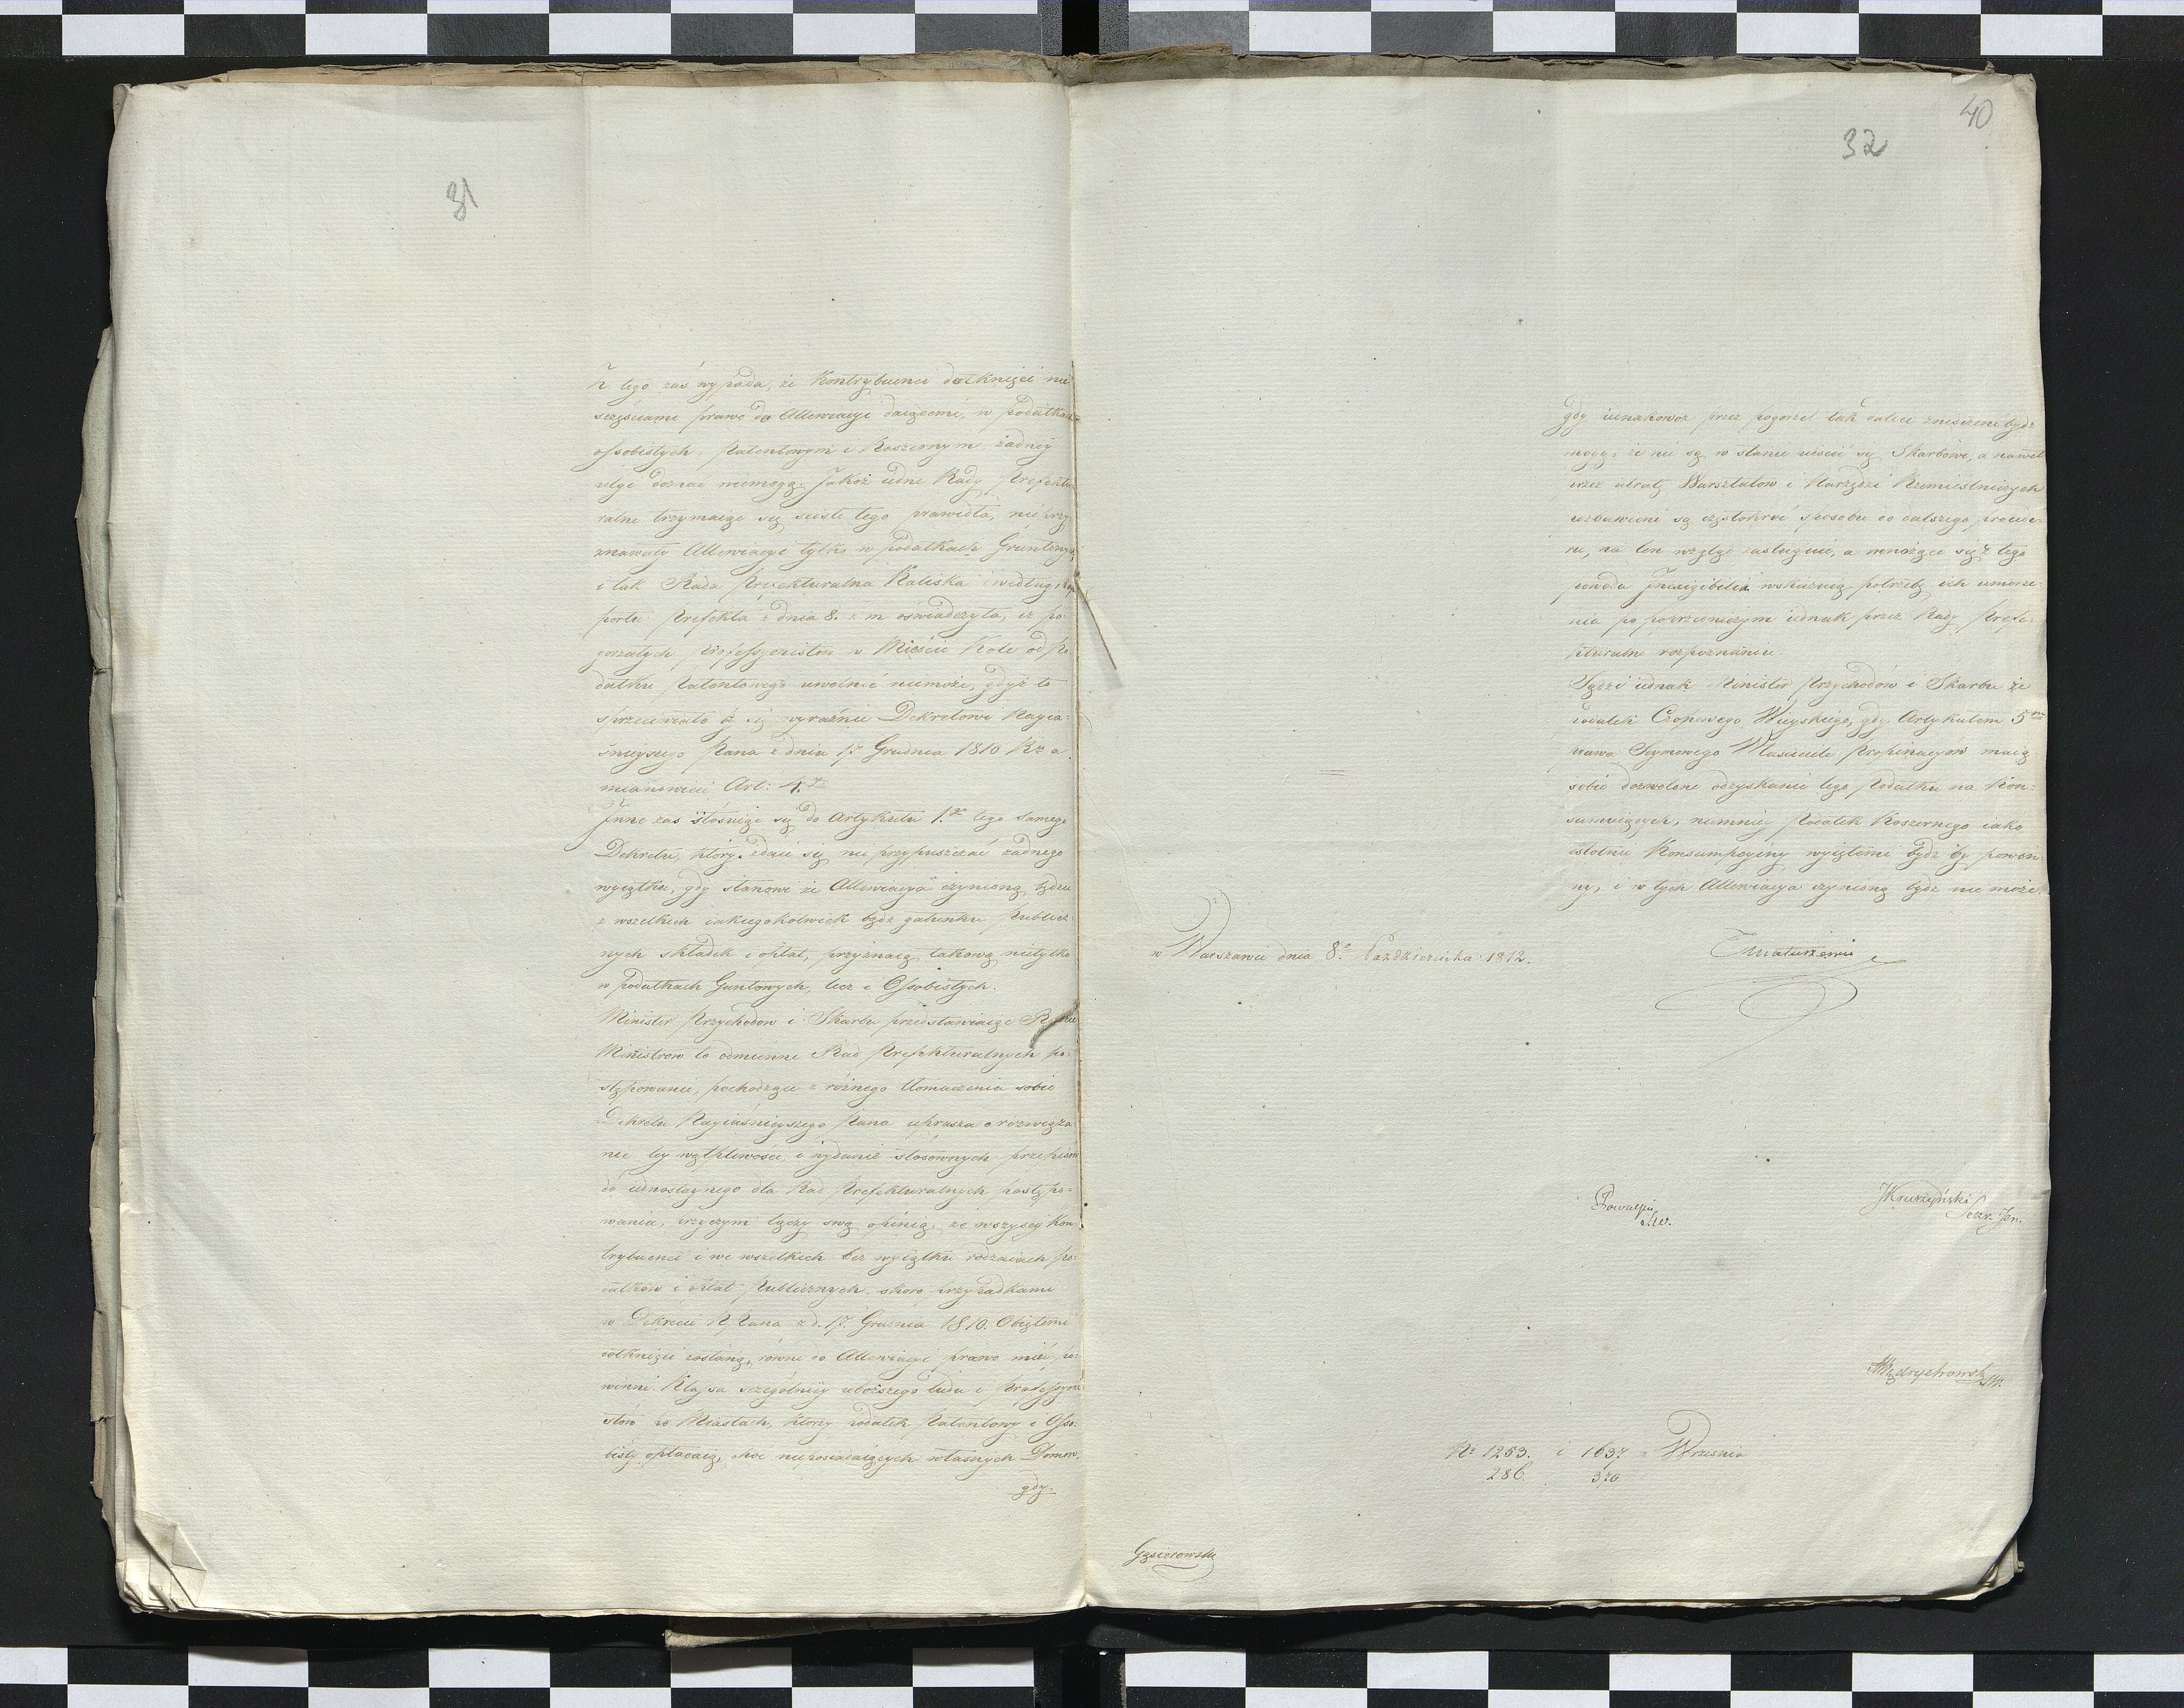 31
Z tego zaś wypada, że Kontrybuenci dotknięci nie
szczęściami prawo do Allewiacyi daiącemi, w podatkach
ossobistych, Patentowym i Koszernym żadney
ulgi doznać niemogą. Jakoż iedne Rady Prefektu
ralne trzymaiąc się ściśle tego prawidła, nieprzy
znawały Allewiacyi tylko w podatkach Gruntowych
i tak Rada Prefekturalna Kaliska i według Rap
portu Prefekta z dnia 8. z m oświadczyła, iż po
gorzałych Professyonistów w Mieście Kole od Po
datku Patentowego uwolnić niemoże, gdyż to
sprzeciwiało by się wyraźnie Dekretowi Nayia:
śnieyszego Pana z dnia 17 Grudnia 1810 R: a
mianowicie Art: 4.
Inne zas stósuiąc się do Artykułu 1.go tego samego
Dekretu, który zdaie się nie przypuszczać żadnego
wyiątku, gdy stanowi że Allewiacya czynioną będzie
z wszelkich iakiegokolwiek bądź gatunku Publicz:
nych składek i opłat, przyznaią takową nietylko
w podatkach Guntowych, lecz i Ossobistych.
Minister Przychodow i Skarbu przedstawiaiąc Radzie
Ministrow to odmienne Rad Prefekturalnych po:
stępowanie, pochodzące z różnego tłomaczenia sobie
Dekretu Nayiaśnieyszego Pana uprasza o rozwiąza
nie tey wątpliwości, i wydanie stósownych przepisów
do iednostaynego dla Rad Prefekturalnych postępo:
wania, przyczym łączy swą opinią, że wszyscy Kon:
trybuenci i we wszelkich bez wyiątku rodzaiach po:
datków i opłat Publicznych skoro przypadkami
w Dekrecie N Pana z d. 17. Grudnia 1810. Obiętemi
dotknięci zostaną, równe do Allewiacyi prawo mieć po:
winni. Klassa szczególniey uboższego ludu i Professyoni
stów po Miastach, którzy podatek Patentowy i Osso:
bisty opłacaią, choć nieposiadaiących własnych Domów,
gdy
40
32
gdy iednakowoż przez pogorzel tak dalece zniszczeni bydź
mogą, że nie są w stanie uiścić się Skarbowi, a nawet
przez utratę Warsztatów i Narzędzi Rzemieślniczych
pozbawieni są częstokroć sposobu do dalszego prowadze:
nia, na ten wzgląd zasługuie, a mnożące się z tego
powodu Inexigibilia wskazuią potrzebę ich umorze:
nia po poprzedniczym iednak przez Rady Prefe:
kturalne rozpoznaniu.
Sądzi iednak Minister Przychodów i Skarbu że
podatek Czopowego Wieyskiego, gdy Artykułem 5m
prawa Seymowego Właściciele Propinacyów maią
sobie dozwolone odzyskanie tego Podatku na Kon:
sumuiących, niemniey Podatek Koszernego iako
istotnie Konsumpcyiny wyiętemi bydź by powin:
ny, i w tych Allewiacya czynioną bydź nie może.
w Warszawie dnia 8o Października 1812.
TMatuszewic
JKruszyński
Sekr: Jen.
Nr 1253. i 1637 z Września
286. 370
Gąsiorowski